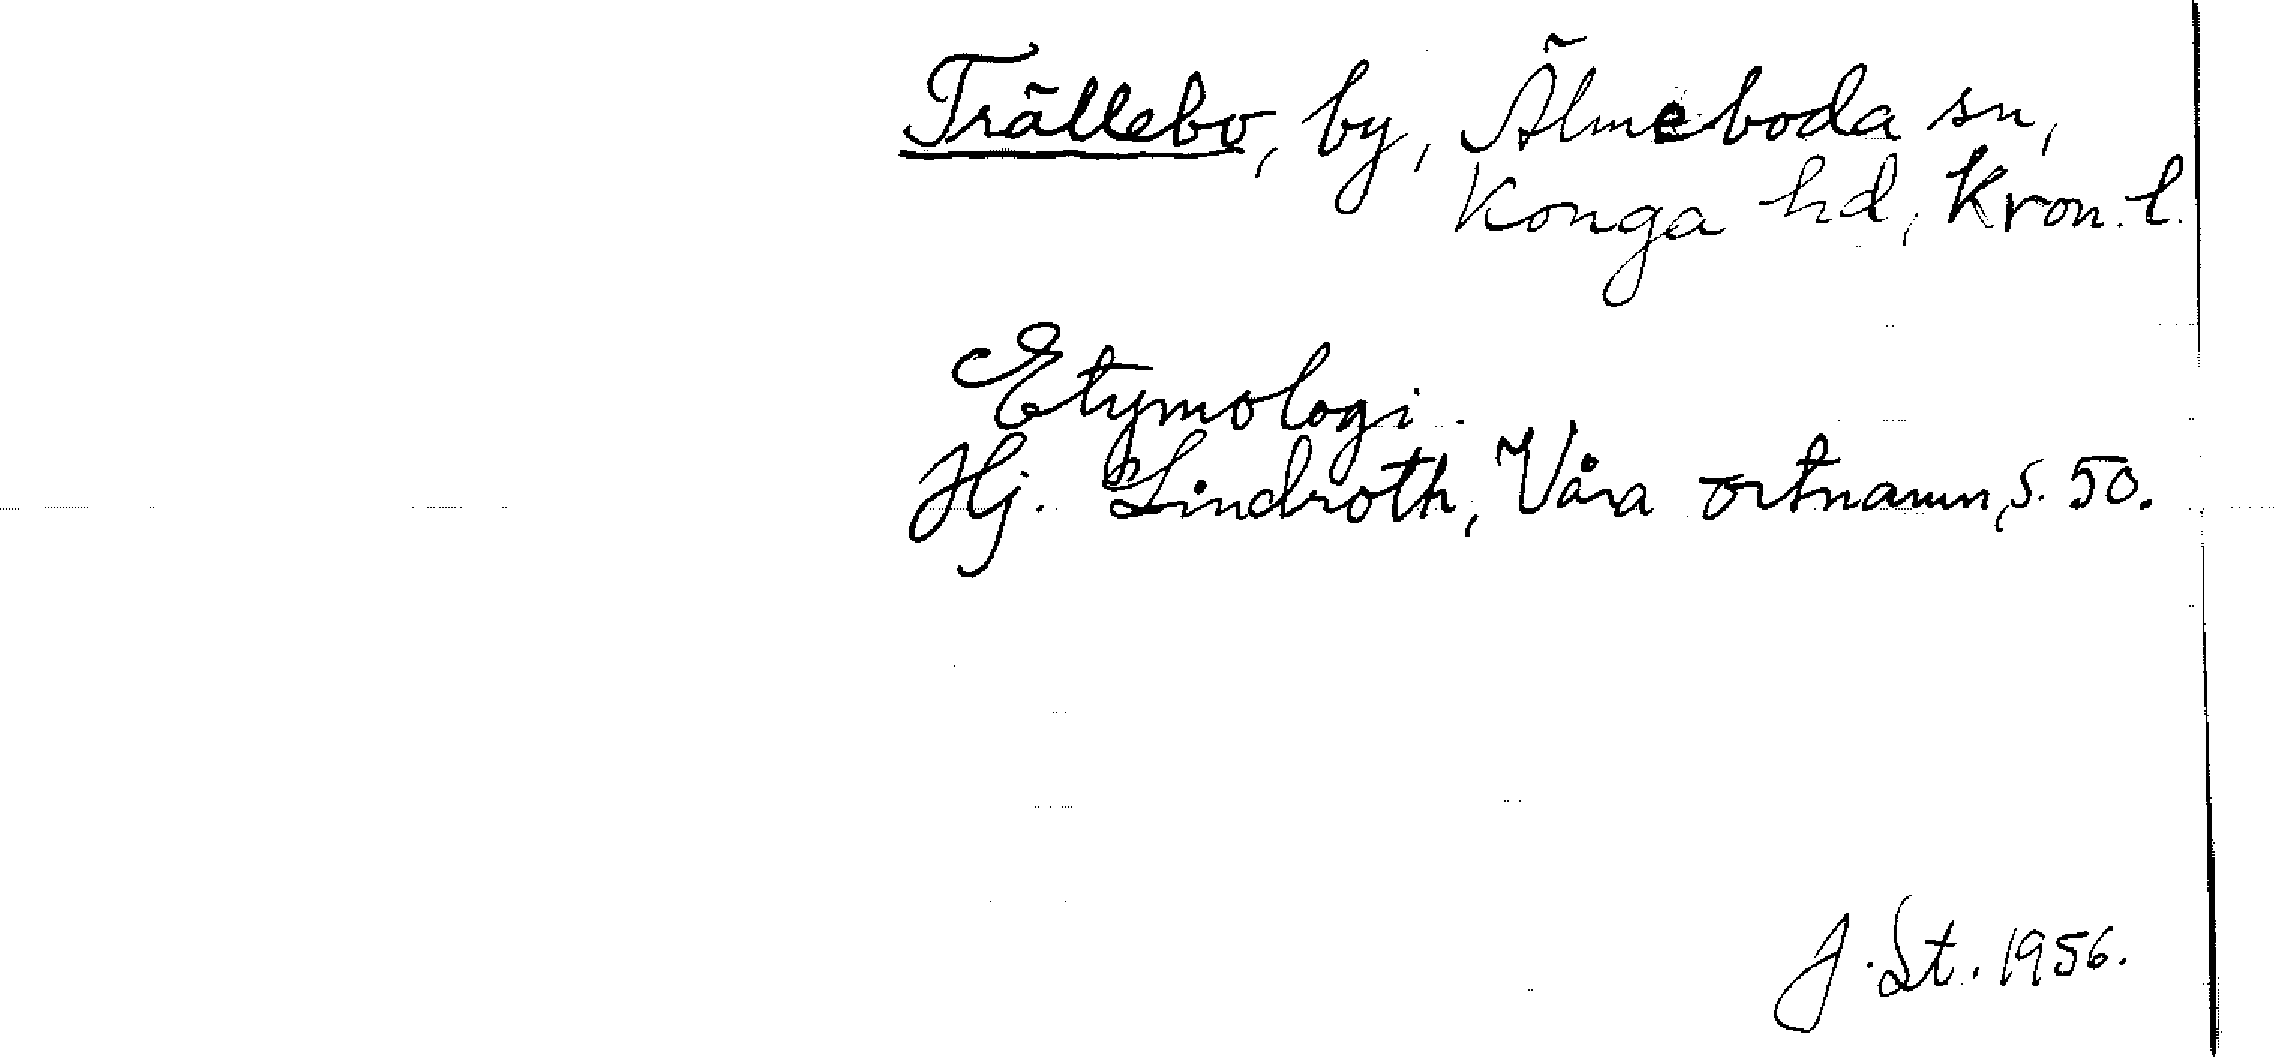 Trällebo, by, Älmeboda sn,
Konga hd, Kron. l.
Etymologi.
Hj. Lindroth, Våra ortnamn, s. 50.
J. St. 1956.